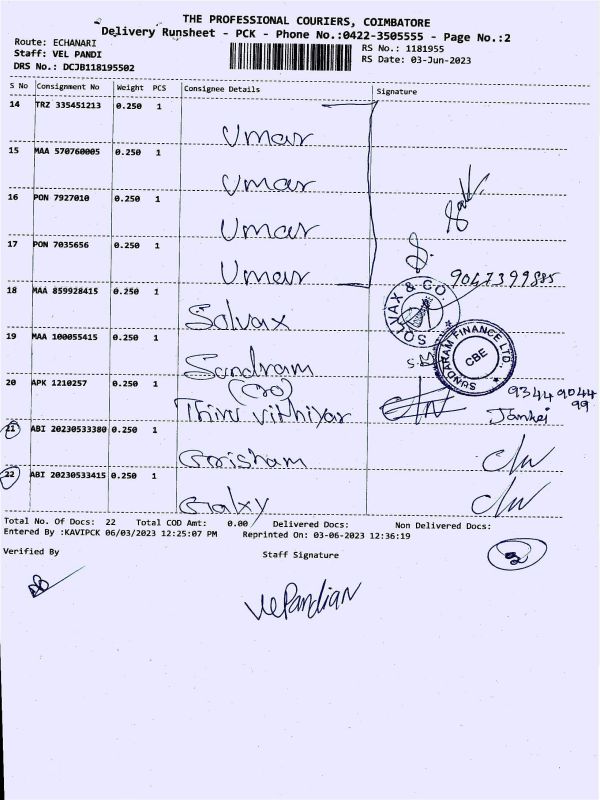 THE PROFESSIONAL COURIERS, COIMBATORE
Delivery Runsheet - PCK - Phone No.:0422-3505555 - Page No.:2
Route: ECHANARI
Staff: VEL PANDI
DRS No.: DCJB118195502
RS No.: 1181955
RS Date: 03-Jun-2023
S No Consignment No Weight PCS Consignee Details Signature
14 TRZ 335451213 0.250 1 Umar
15 MAA 570760005 0.250 1 Umar
16 PON 7927010 0.250 1 Umar
17 PON 7035656 0.250 1 Umar
9047399885
18 MAA 859928415 0.250 1 Solvax
SOLVAX & CO.
19 MAA 100055415 0.250 1 Sundram
SUNDARAM FINANCE LTD.
CBE
20 APK 1210257 0.250 1
93449044
99
21 ABI 20230533380 0.250 1
22 ABI 20230533415 0.250 1 Galxy
Total No. Of Docs: 22 Total COD Amt: 0.00 Delivered Docs: Non Delivered Docs:
Entered By :KAVIPCK 06/03/2023 12:25:07 PM Reprinted On: 03-06-2023 12:36:19
Verified By Staff Signature
VelPandian